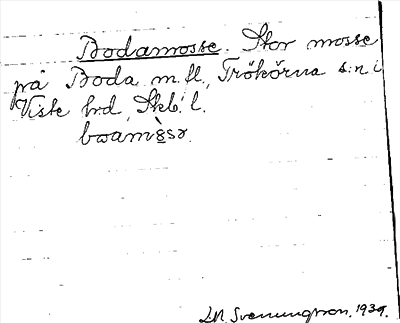 Bodamosse. Stor mosse
på Boda m. fl., Trökörna s:n i
Viste hd, Skb. l.
bωamɞ̀sɘ.
Svenungsson, 1939.